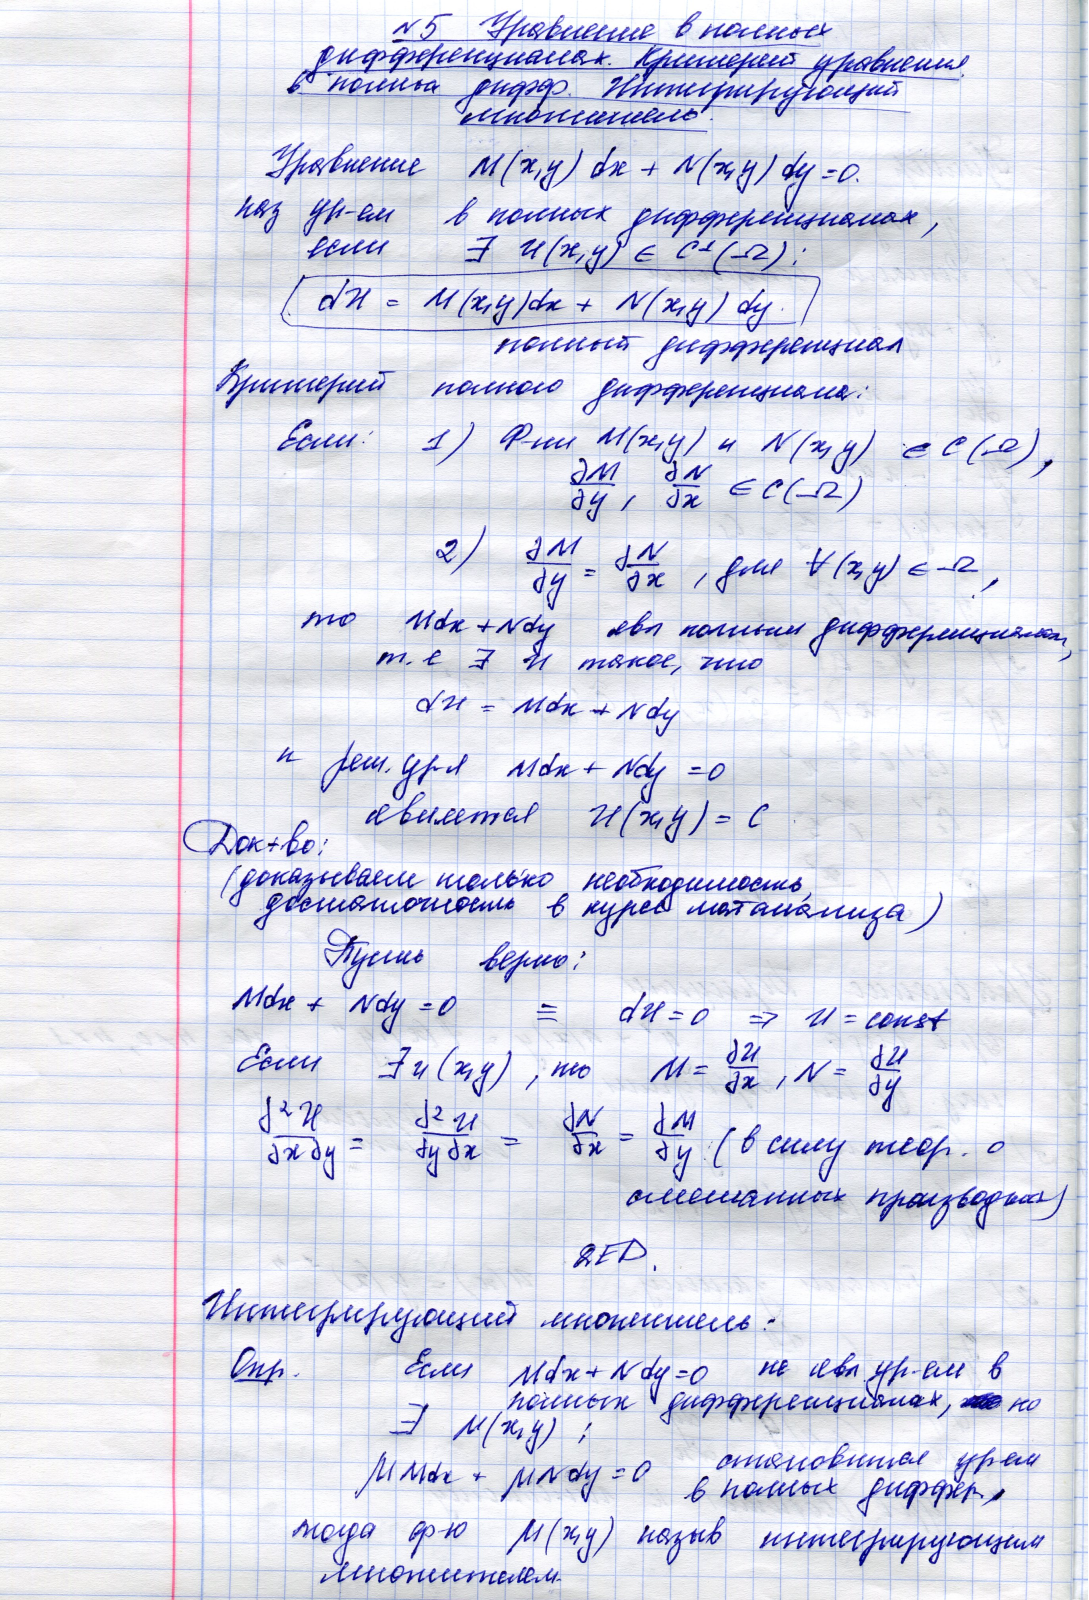 №5 Уравнение в полных
дифференциалах. Критерий уравнения
в полных дифф. Интегрирующий
множитель.
Уравнение M(x,y) dx + N(x,y) dy = 0.
наз ур-ем в полных дифференциалах,
если ∃ U(x,y) ∈ C¹(Ω):
dU = M(x,y)dx + N(x,y) dy.
полный дифференциал
Критерий полного дифференциала:
Если: 1) Ф-ии M(x,y) и N(x,y) ∈ C(Ω),
∂M/∂y, ∂N/∂x ∈ C(Ω)
2) ∂M/∂y = ∂N/∂x, для ∀(x,y) ∈ Ω,
то Mdx + Ndy явл полным дифференциалом,
т.е ∃ U такое, что
dU = Mdx + Ndy
и реш. ур-я Mdx + Ndy = 0
является U(x,y) = C
Док-во:
(доказываем только необходимость,
достаточность в курсе матанализа)
Пусть верно:
Mdx + Ndy = 0 ≡ dU = 0 ⇒ U = const
Если ∃ U(x,y), то M = ∂U/∂x, N = ∂U/∂y
∂²U/∂x∂y = ∂²U/∂y∂x = ∂N/∂x = ∂M/∂y (в силу теор. о
смешанных производных)
QED.
Интегрирующий множитель:
Опр. Если Mdx + Ndy = 0 не явл ур-ем в
полных дифференциалах, но
∃ μ(x,y):
μMdx + μNdy = 0 становится ур-ем
в полных диффер,
тогда ф-ю μ(x,y) назыв интегрирующим
множителем.